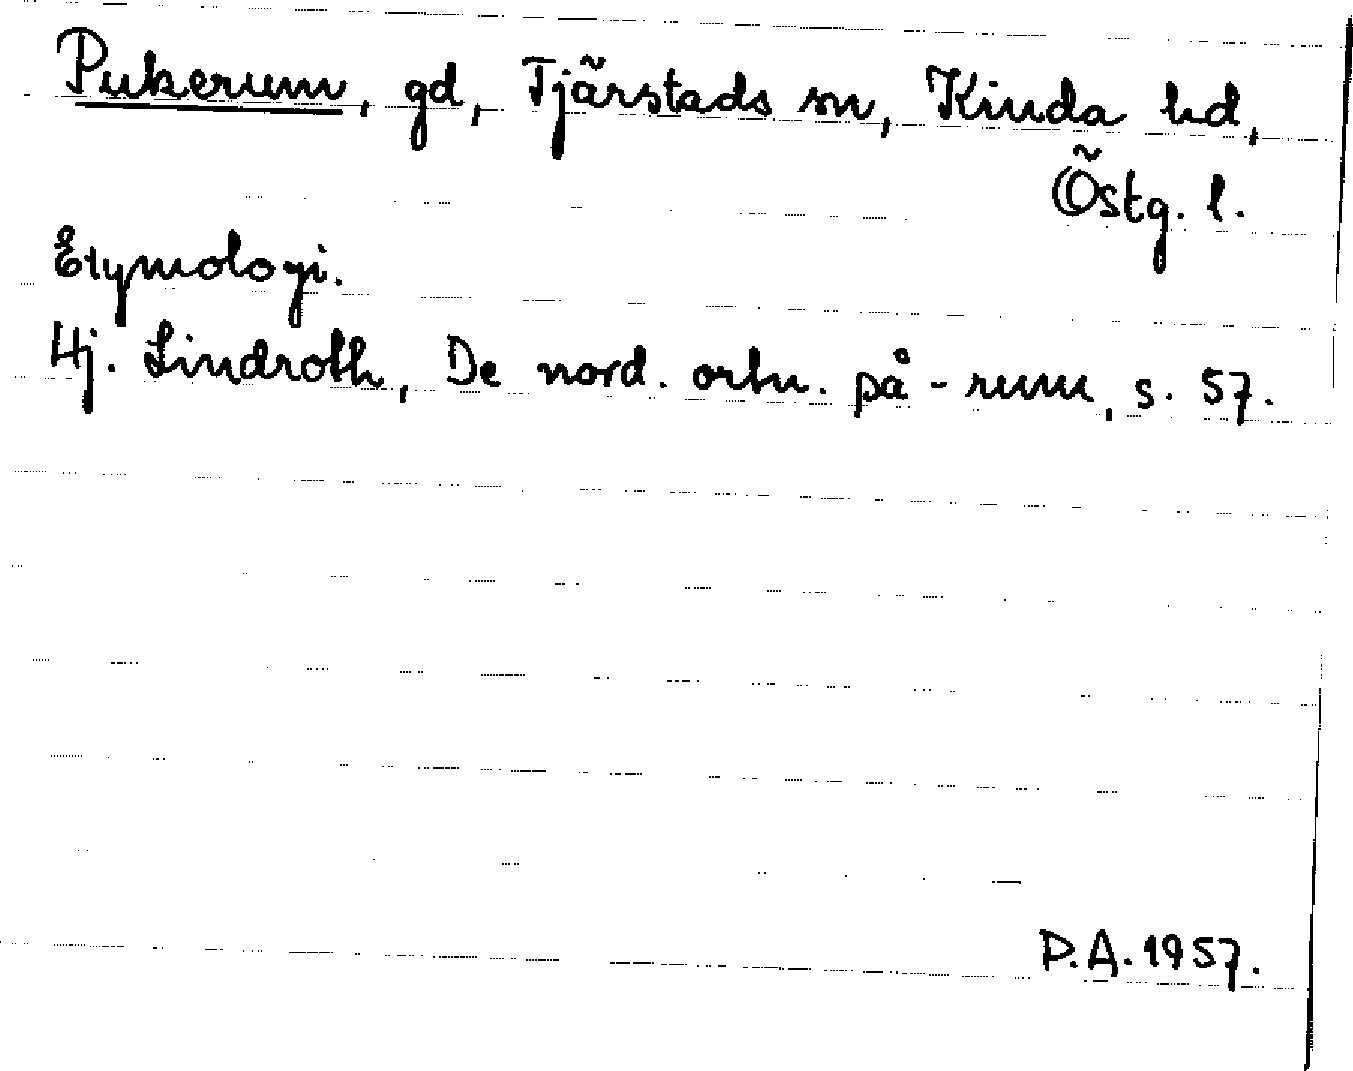 Pukerum, gd, Tjärstads sn, Kinda hd,
Östg. l.
Etymologi.
Hj. Lindroth, De nord. ortn. på -rum, s. 57.
P.A. 1957.